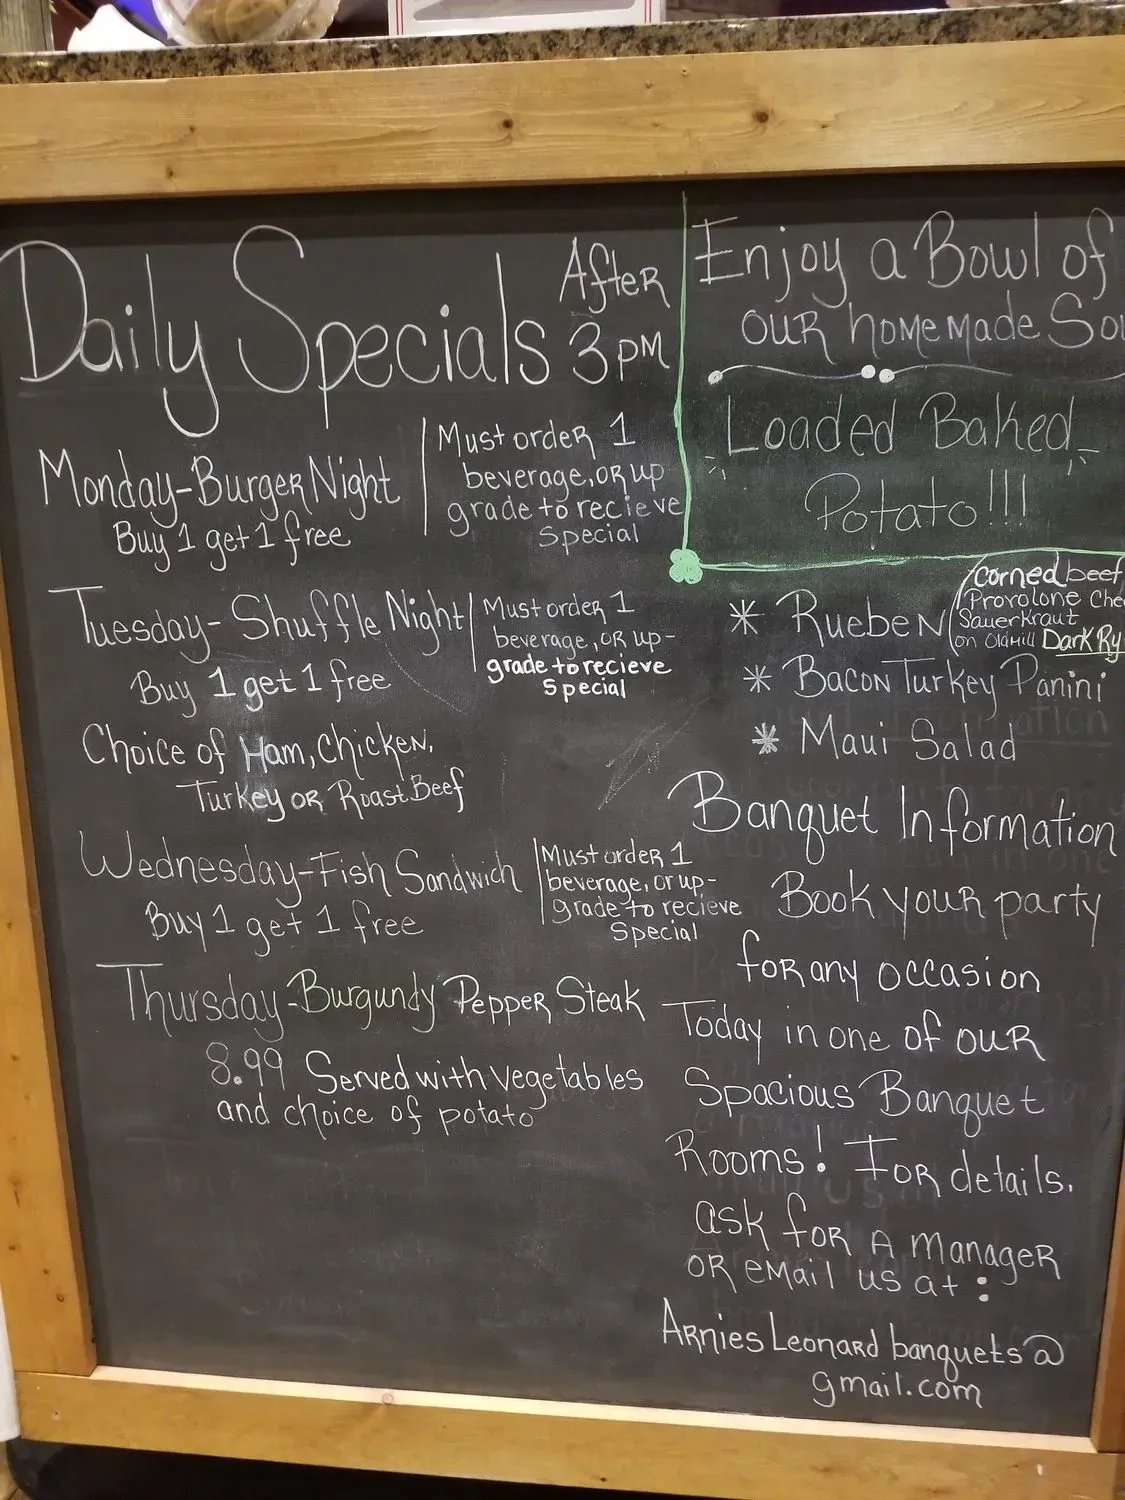 Daily Specials After 3PM
Monday-Burger Night
Buy 1 get 1 free
Must order 1
beverage, or up
grade to recieve
Special
Tuesday- Shuffle Night
Buy 1 get 1 free
Must order 1
beverage, or up-
grade to recieve
Special
Choice of Ham, Chicken,
Turkey or Roast Beef
Wednesday-Fish Sandwich
Buy 1 get 1 free
Must order 1
beverage, or up-
grade to recieve
Special
Thursday-Burgundy Pepper Steak
8.99 Served with vegetables
and choice of potato
Enjoy a Bowl of
our homemade
Loaded Baked
Potato!!!
* Rueben
corned beef,
Provolone
Sauerkraut
on Old Mill Dark
* Bacon Turkey Panini
* Maui Salad
Banquet Information
Book your party
for any occasion
Today in one of our
Spacious Banquet
Rooms! For details.
ask for a manager
or email us at:
Arnies Leonard banquets@
gmail.com